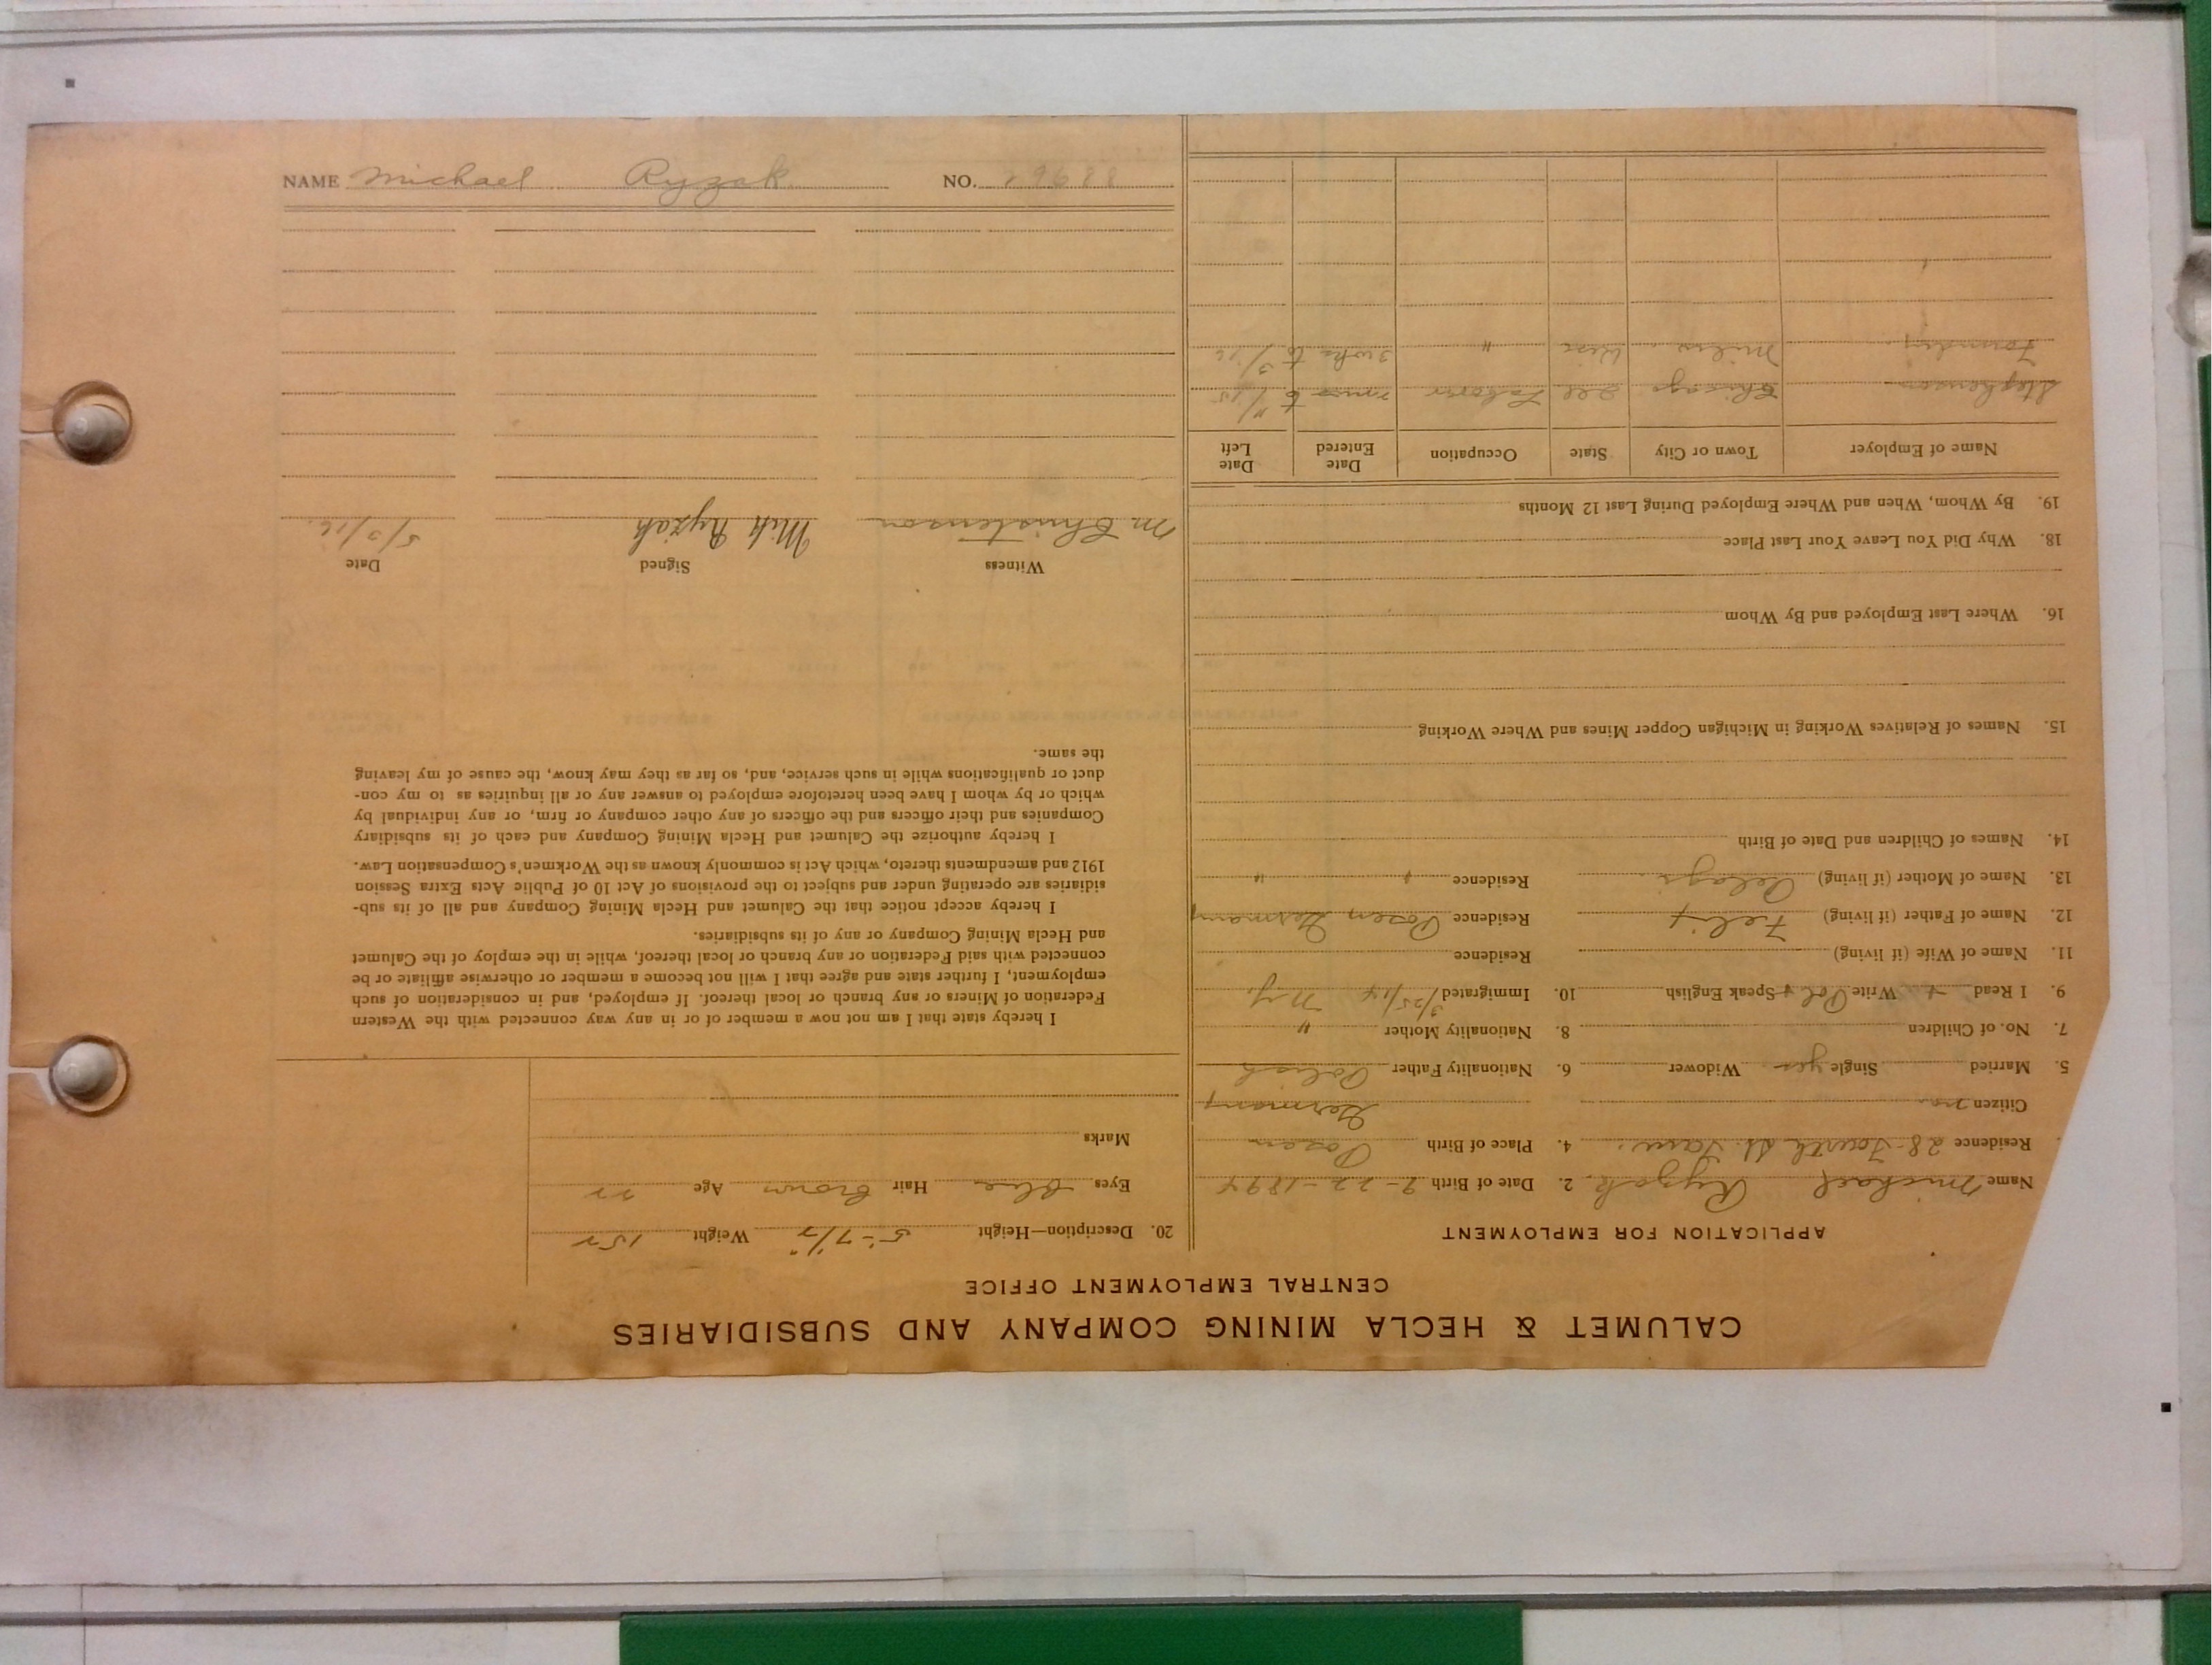 CALUMET & HECLA MINING COMPANY AND SUBSIDIARIES
CENTRAL EMPLOYMENT OFFICE
APPLICATION FOR EMPLOYMENT
Name Michael Ryzak. 2. Date of Birth 9-22-1894
Residence 28 Fourth St. 4. Place of Birth Posen
Citizen no. Germany
5. Married Single yes Widower 6. Nationality Father Polish
7. No. of Children 8. Nationality Mother "
9. I Read + Write Pol + Speak English 10. Immigrated 3/25/14 N.Y.
11. Name of Wife (if living) Residence
12. Name of Father (if living) Felix Residence Posen Germany
13. Name of Mother (if living) Pelagi Residence " "
14. Names of Children and Date of Birth
15. Names of Relatives Working in Michigan Copper Mines and Where Working
16. Where Last Employed and By Whom
18. Why Did You Leave Your Last Place
19. By Whom, When and Where Employed During Last 12 Months
Name of Employer Town or City State Occupation Date Entered Date Left
Stephenson Chicago Ill Laborer to 11/15
Foundry. Milw. Wisc " 3 wks to 3/16
20. Description—Height 5'-7 1/2" Weight 152
Eyes Blue Hair Brown Age 22
Marks
I hereby state that I am not now a member of or in any way connected with the Western
Federation of Miners or any branch or local thereof. If employed, and in consideration of such
employment, I further state and agree that I will not become a member or otherwise affiliate or be
connected with said Federation or any branch or local thereof, while in the employ of the Calumet
and Hecla Mining Company or any of its subsidiaries.
I hereby accept notice that the Calumet and Hecla Mining Company and all of its sub-
sidiaries are operating under and subject to the provisions of Act 10 of Public Acts Extra Session
1912 and amendments thereto, which Act is commonly known as the Workmen's Compensation Law.
I hereby authorize the Calumet and Hecla Mining Company and each of its subsidiary
Companies and their officers and the officers of any other company or firm, or any individual by
which or by whom I have been heretofore employed to answer any or all inquiries as to my con-
duct or qualifications while in such service, and, so far as they may know, the cause of my leaving
the same.
Witness Signed Date
M. Christenson Mik Ryzak 5/3/16.
NAME Michael Ryzak. NO. 29688